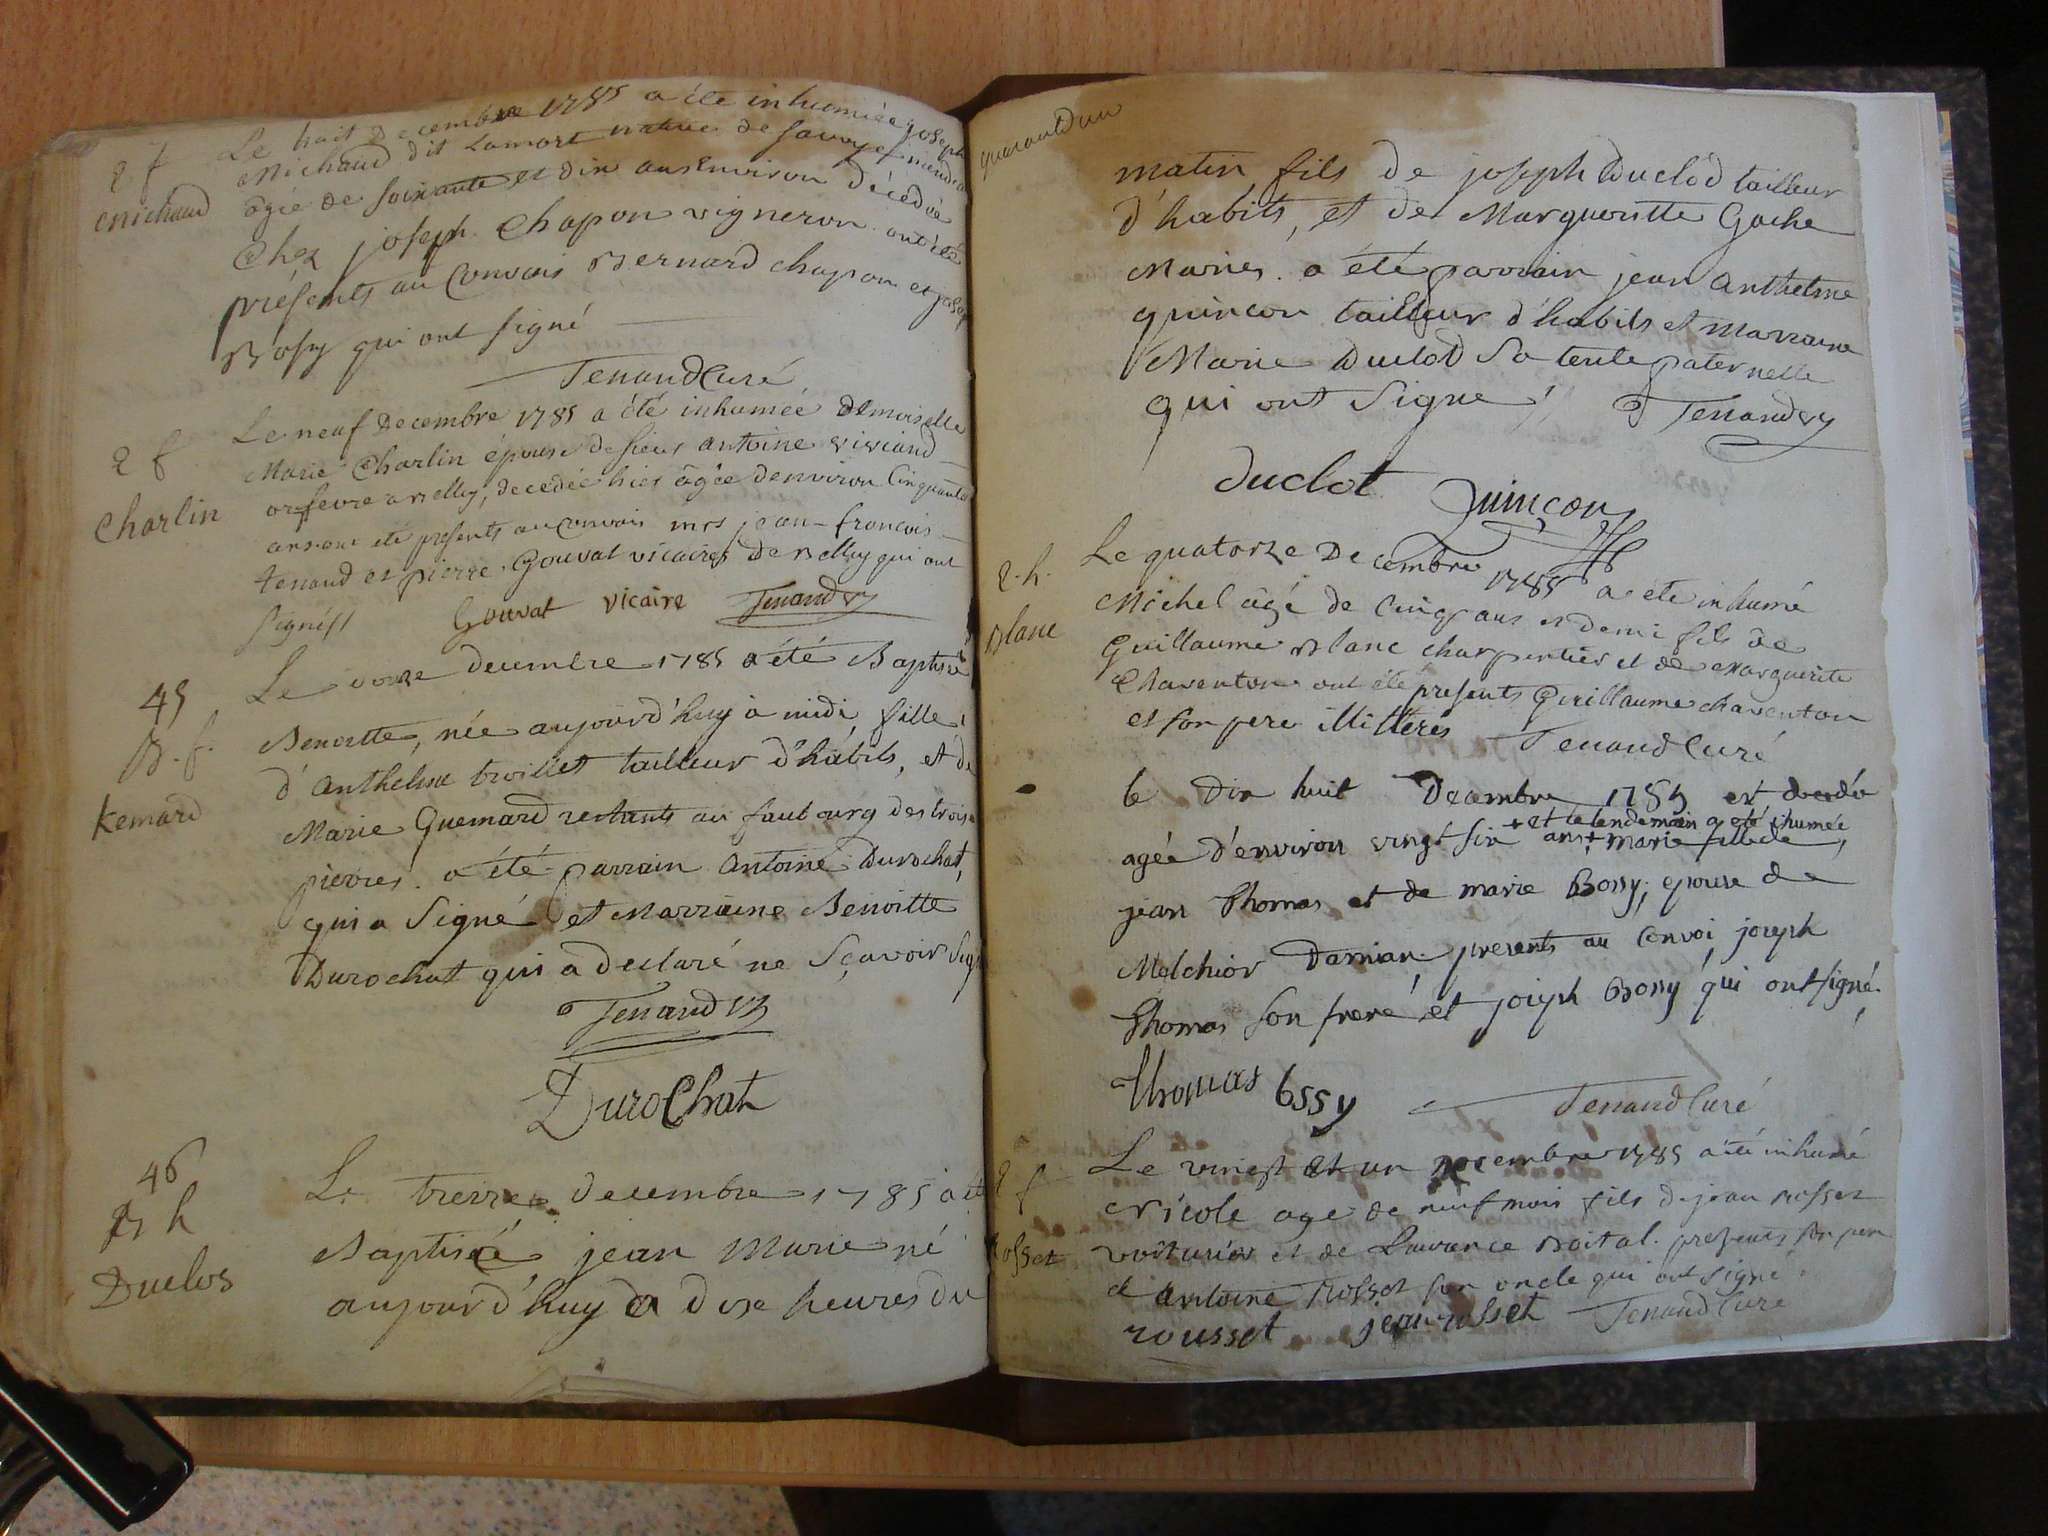 Le huit decembre 1785 a été inhumée joseph
2 f Michaud dit Lamort native de
Michaud agée de soixante et dix ans Environ décedée
Chez joseph Chapon vigneron ont été
présents au convois Bernard chapon et joseph
Bossy qui ont signé
Tenand Curé
Le neuf Decembre 1785 a été inhumée demoiselle
2 f Marie Charlin épouse de sieur antoine viviand
Charlin orfevre a Belley, decedée hier âgée d'environ Cinquante
ans ont été presents au convois mrs jean-francois
tenand et pierre Gouvat vicaires de Belley qui ont
signés
Gouvat vicaire Tenand v
45 Le onze decembre 1785 a été Baptisé
B. f. Benoitte, née aujourd'huy à midi fille
d'anthelme trviollet tailleur d'habits, et de
Kemard Marie Guemard restants au faubourg des trois
pierres. a été parrain antoine Durochat,
qui a Signé et Marraine Benoitte
Durochat qui a declaré ne Sçavoir Sig
Tenand v
DuroChat
46 Le treize decembre 1785 a été
B h Baptisé jean Marie né
Duclos aujourd'huy a dix heures du
quarantdun
matin fils de joseph Duclod tailleur
d'habits, et de Margueritte Gache
Mariés. a été parrain jean Anthelme
quincon tailleur d'habits et marraine
Marie Duclod Sa tente paternelle
qui ont Signé Tenand v
duclot Quinçon
Le quatorze Decembre 1785 a ete inhumé
2. h. Michel âgé de Cinq ans et demi fils de
Blanc Guillaume Blanc charpentier et de Marguerite
Chaventon ont été presents Guillaume chaventon
et son pere illitterés Tenand Curé
le dix huit Decembre 1785 est decedée
+ et le lendemain a été ihumée
agée d'environ vingt six ans + marie fille de
jean Thomas et de marie Bossy, epouse de
Melchior Damian presents au Convoi joseph
Thomas son frere et joseph Bossy qui ont signé
Thomas bssy Tenand Curé
Le vingt et un decembre 1785 a été inhumé
2 f Nicole age de neuf mois fils de jean rosset
rosset voiturier et de Laurance Boital. presents son pere
et antoine Rosset son oncle qui ont signé
rousset jean rosset Tenand Curé